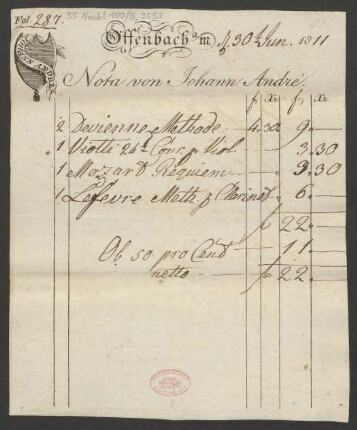 Fol. 287. 55 Nachl 100/B, 3653
Offenbach a/m 30 Jun. 1811
JOHANN ANDRÉ
Nota von Johann André.
f Xr f Xr
2 Devienne Methode 4.30 9
1 Viotti 26t Conc. p Viol. 3.30
1 Mozart Requiem 3.30
1 Lefevre Meth. p Clarinet 6
f 22
Ob 50 pro Cend 11
netto f 22